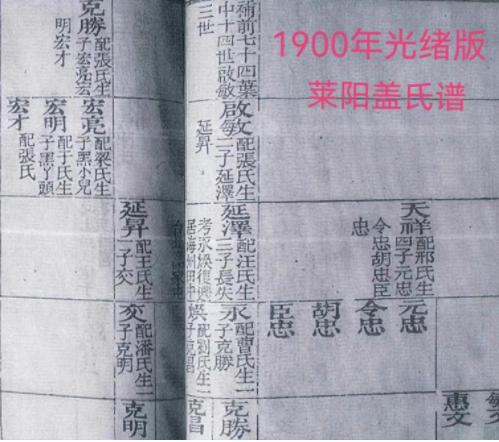 1900年光绪版
莱阳盖氏谱
補前七十四葉
中十四世啟敏
三世
啟敏 配張氏生
二子延澤
延昇
天祥 配邢氏生
四子元忠
令忠胡忠臣
忠
延澤 配汪氏生
三子長失
考永煥復興
元忠
令忠
胡忠
臣忠
永 配曹氏生一
子克勝
煥 配劉氏生一
子克昌
惠文
克勝
克昌
克勝 配張氏生
三子宏亮宏
明宏才
宏亮 配梁氏生
子黑小兒
宏明 配于氏生
子黑丫頭
宏才 配張氏
延昇 配王氏生
一子焌
配潘氏生一
子克明
克明